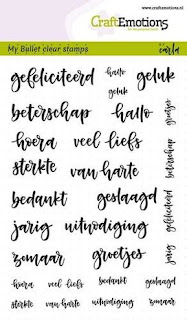 CraftEmotions
www.craftemotions.nl
My Bullet clear stamps
carla
gefeliciteerd hallo geluk
geluk
beterschap hallo groetjes
hoera veel liefs
beterschap
sterkte van harte
bedankt geslaagd gefeliciteerd
jarig uitnodiging
zomaar groetjes jarig
hoera veel liefs bedankt geslaagd
sterkte van harte uitnodiging zomaar